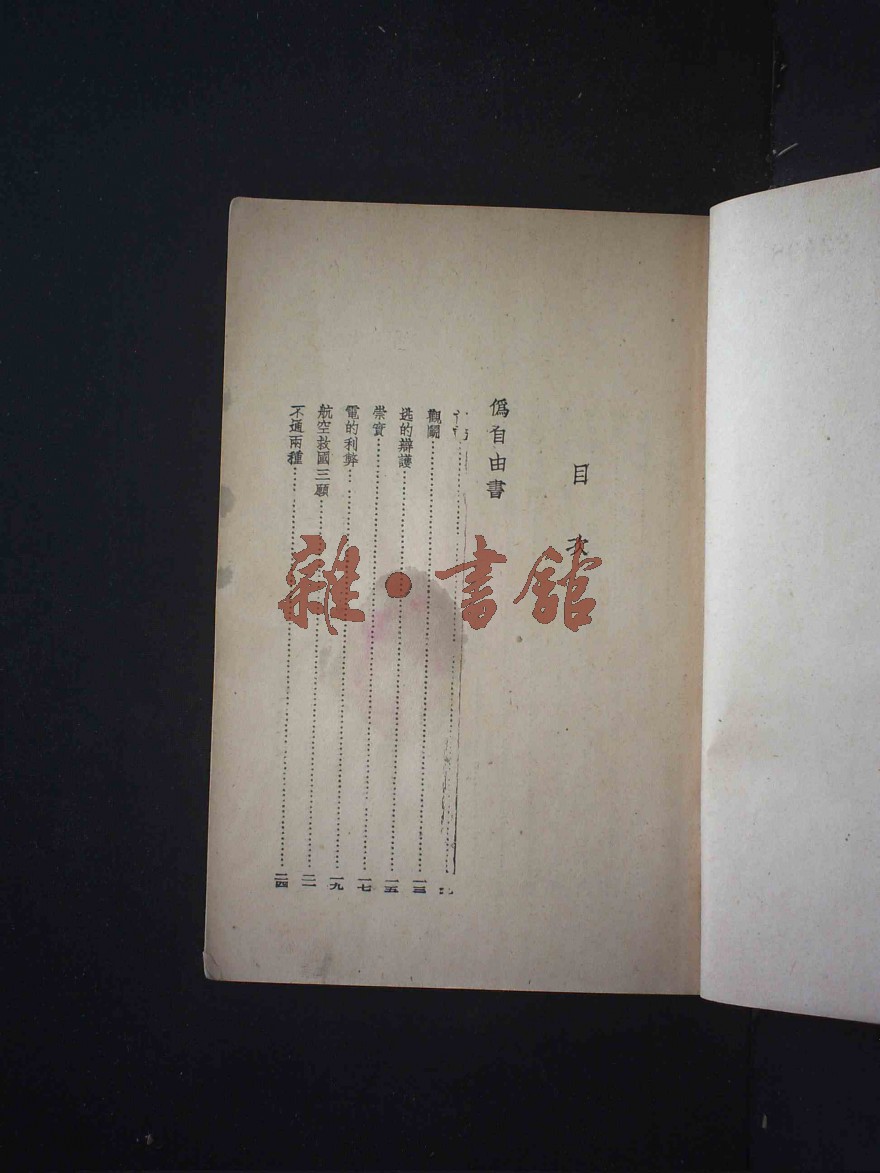 目次
偽自由書
觀鬭……一三
逃的辯護……一五
崇實……一七
電的利弊……一九
航空救國三願……二一
不通兩種……二四
雜·書館